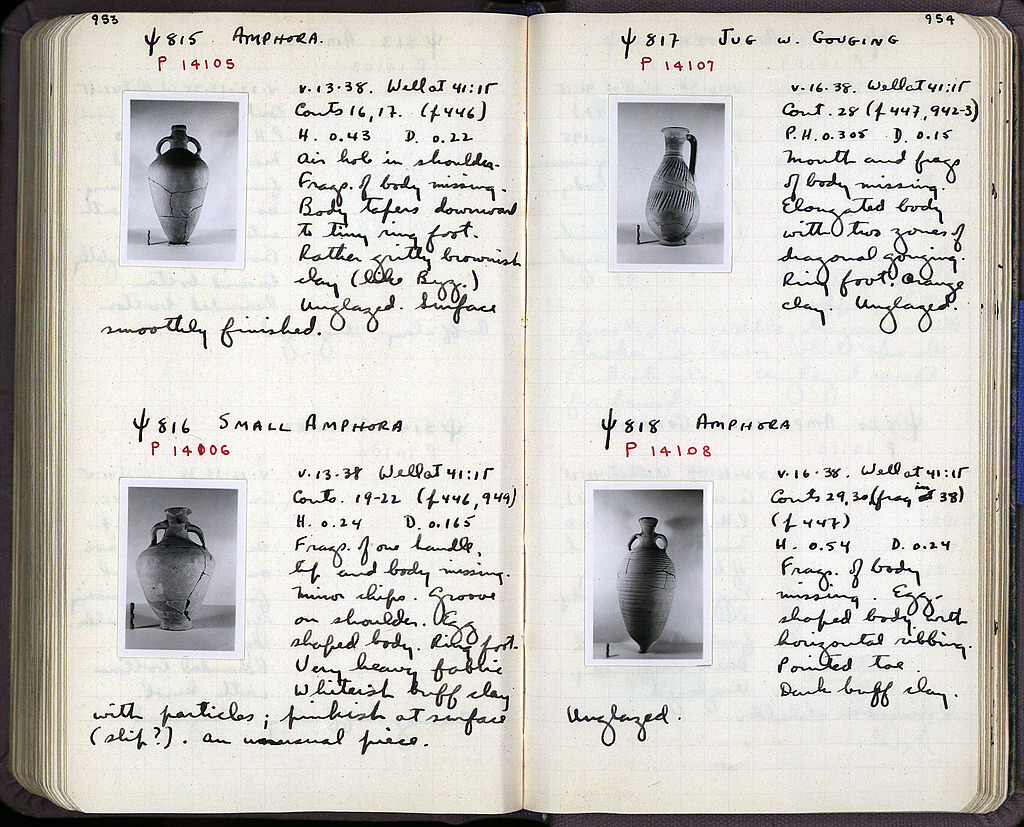 953
Ψ 815 AMPHORA.
P 14105
V-13-38. Well at 41:15
Conts 16, 17. (p 446)
H. 0.43 D. 0.22
Air hole in shoulder.
Frags. of body missing.
Body tapers downward
to tiny ring foot.
Rather gritty brownish
clay (like Byz.)
Unglazed. Surface
smoothly finished.
Ψ 816 SMALL AMPHORA
P 14006
V-13-38 Well at 41:15
Conts. 19-22 (p 446, 949)
H. 0.24 D. 0.165
Frags. of one handle,
lip and body missing.
Minor chips. Groove
on shoulder. Egg
shaped body. Ring foot.
Very heavy fabric
Whiteish buff clay
with particles; pinkish at surface
(slip?). An unusual piece.
954
Ψ 817 JUG W. GOUGING
P 14107
V-16-38. Well at 41:15
Cont. 28 (p 447, 942-3)
P.H. 0.305 D. 0.15
Mouth and frags
of body missing.
Elongated body
with two zones of
diagonal gouging.
Ring foot. Orange
clay. Unglazed.
Ψ 818 AMPHORA
P 14108
V-16-38. Well at 41:15
Conts 29, 30 (frag in 38)
(p 447)
H. 0.54 D. 0.24
Frags. of body
missing. Egg-
shaped body with
horizontal ribbing.
Pointed toe.
Dark buff clay.
Unglazed.